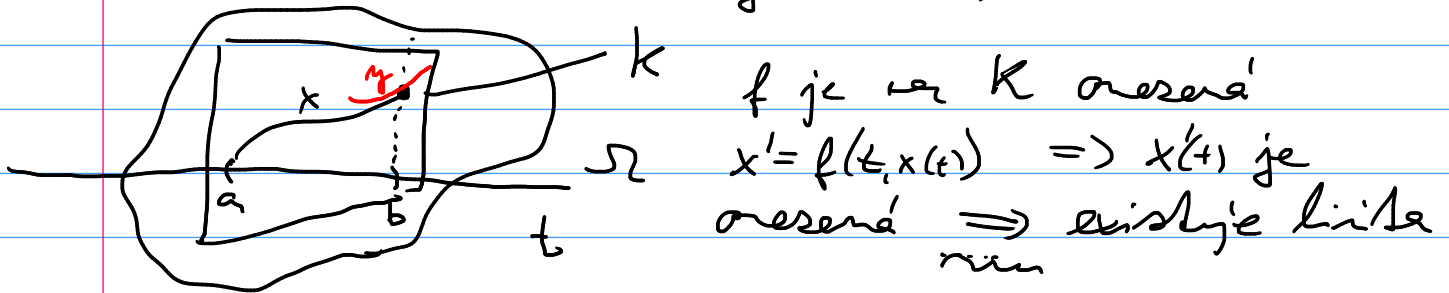 K
y
x
f je na K omezená
Ω
x' = f(t, x(t)) => x'(t) je
a
b
omezená => existuje limita
t